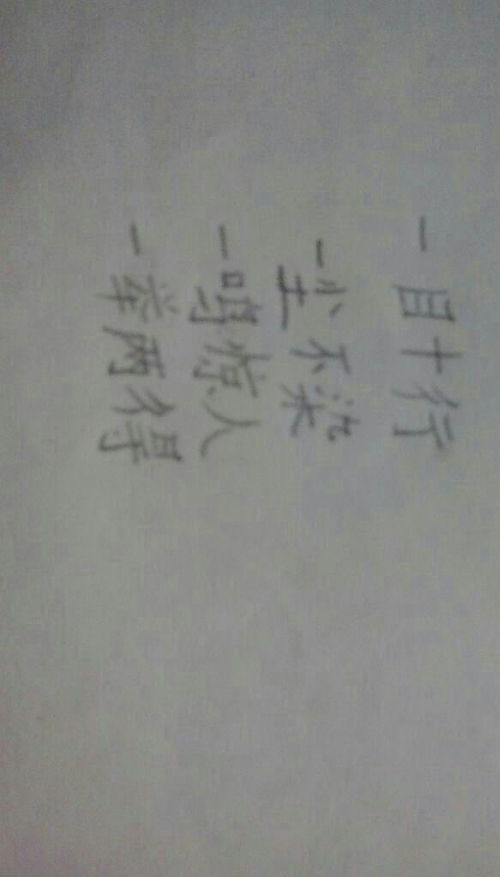 一目十行
一尘不染
一鸣惊人
一举两得